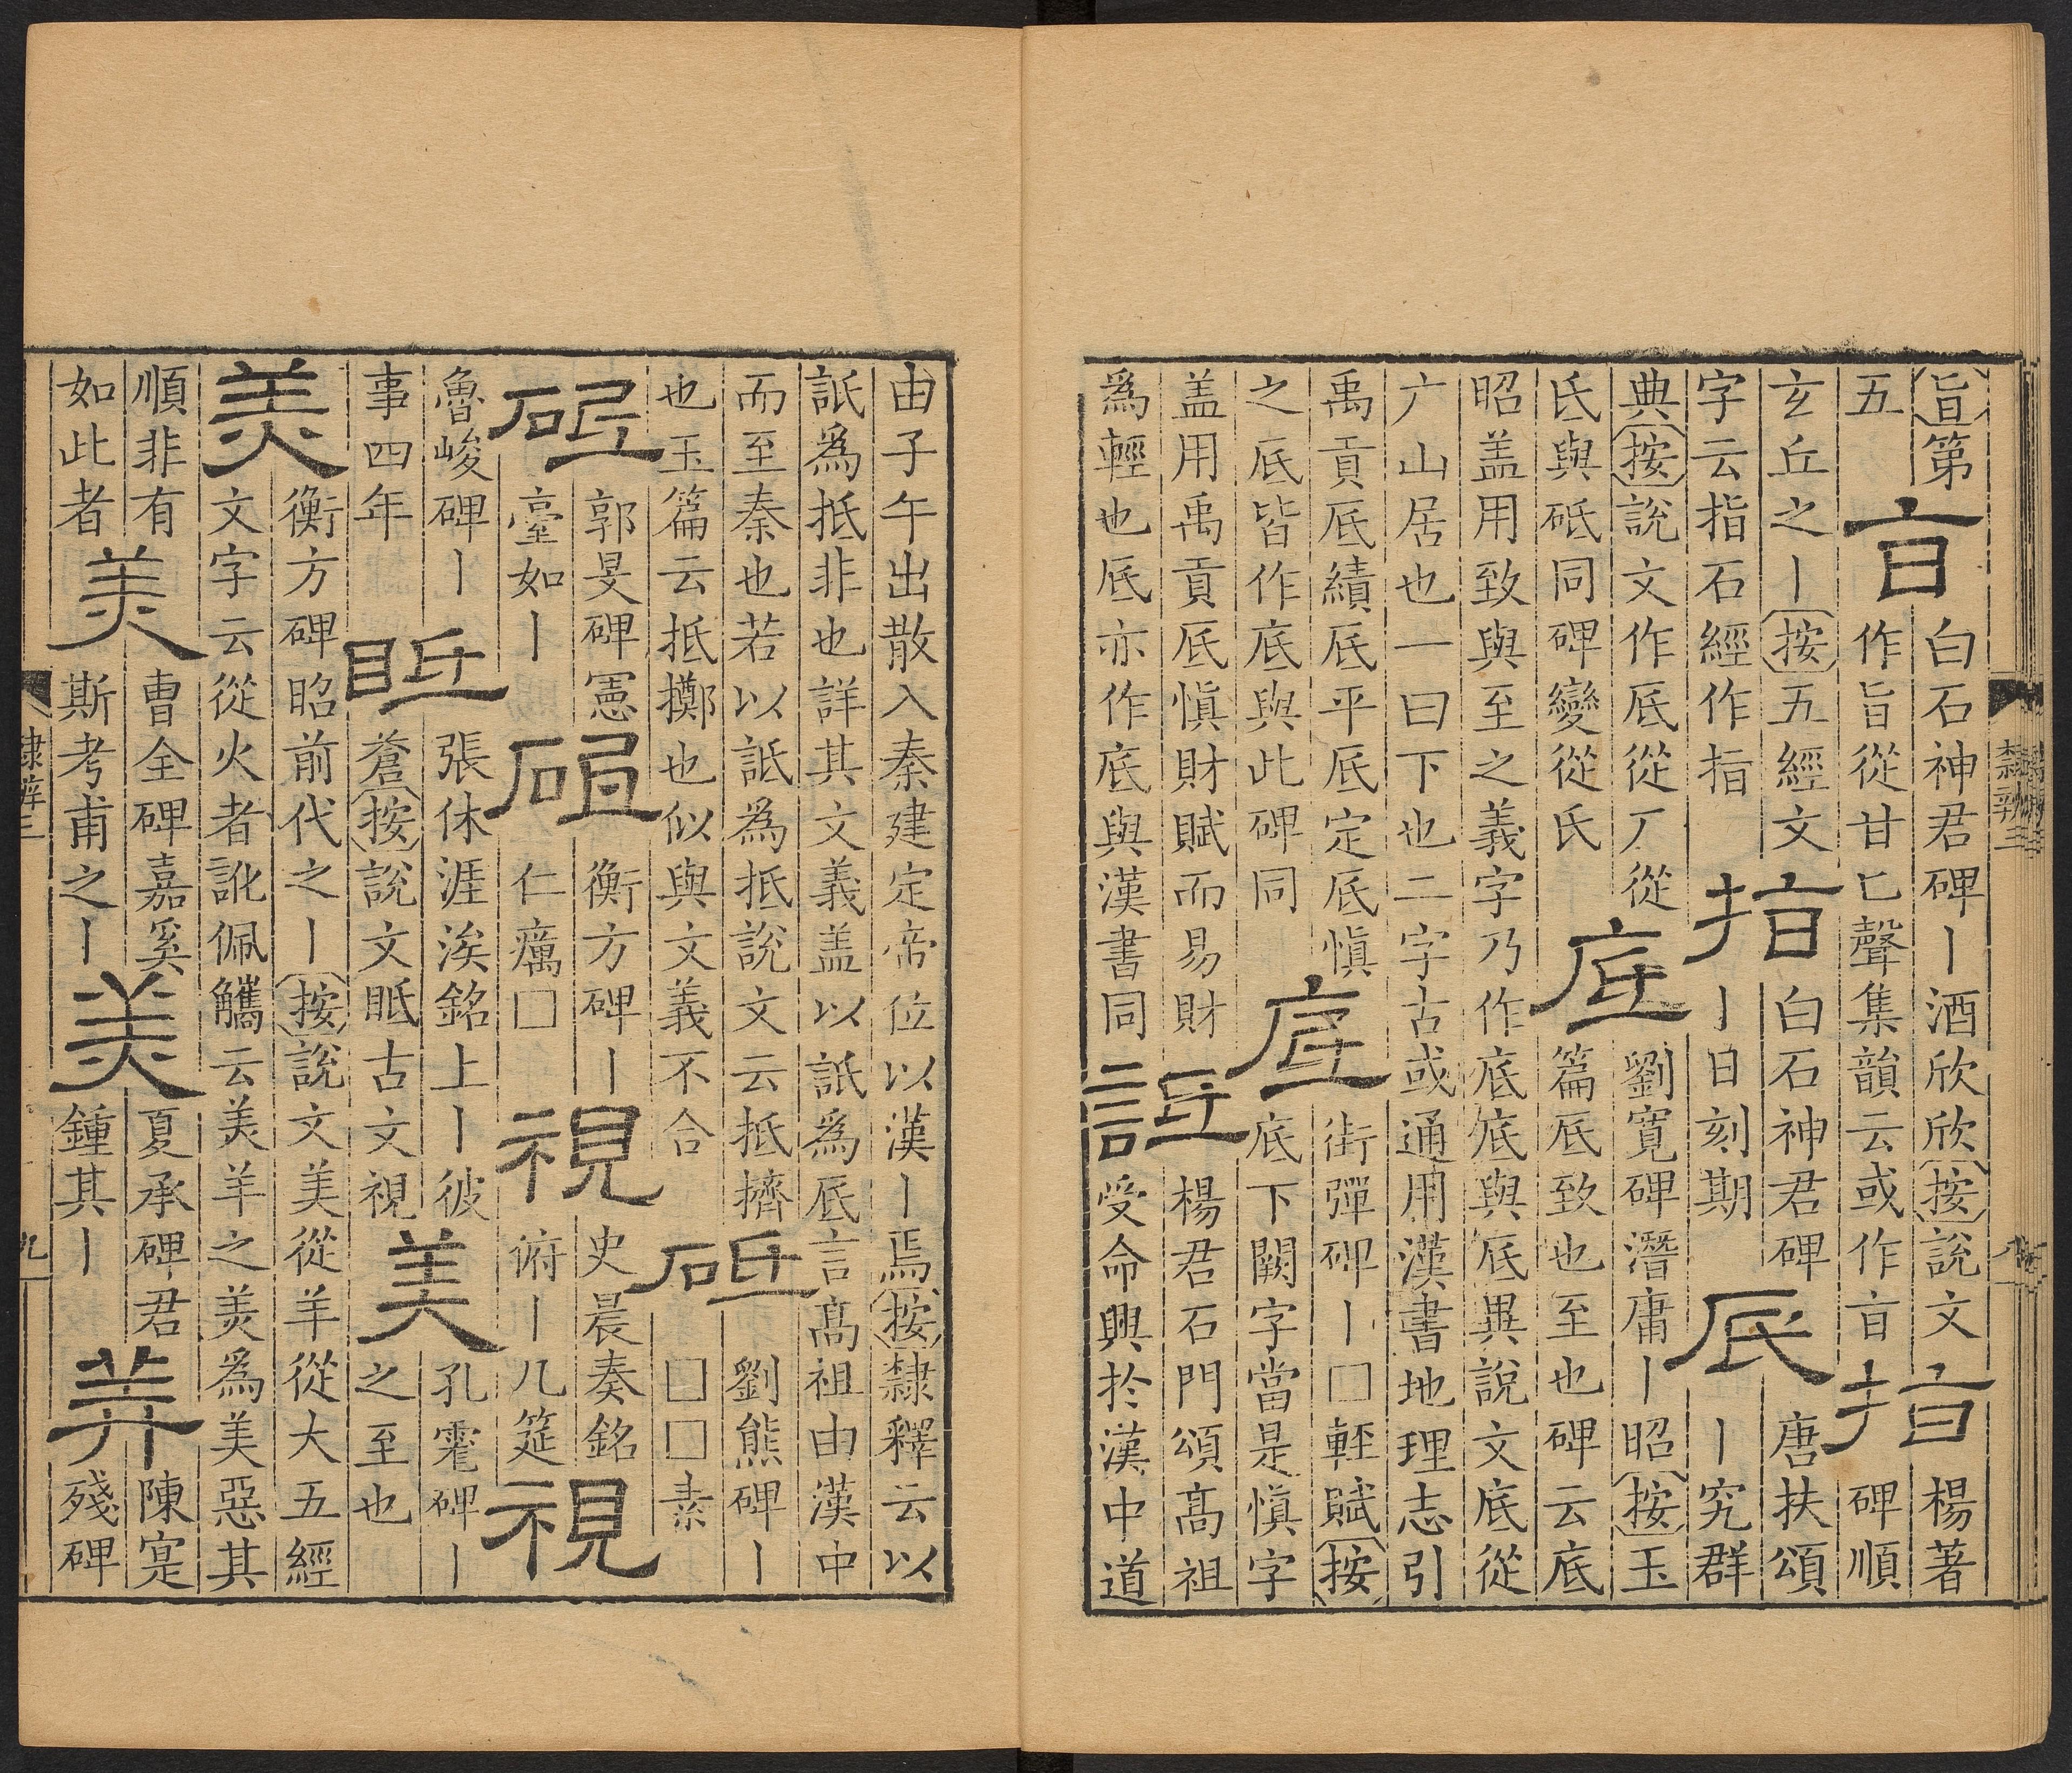 旨第
五
旨
白石神君碑丨酒欣欣按說文
作旨從甘匕聲集韻云或作㫖
指
楊著
碑順
玄丘之丨按五經文
字云指石經作指
指
白石神君碑
丨日刻期
厎
唐扶頌
丨究群
典按說文作厎從厂從
氐與砥同碑變從氏
底
劉寬碑潛庸丨昭按玉
篇厎致也至也碑云底
昭盖用致與至之義字乃作底底與厎異說文底從
广山居也一曰下也二字古或通用漢書地理志引
禹貢厎績厎平厎定厎慎
之厎皆作底與此碑同
底
街彈碑丨□輕賦按
底下闕字當是慎字
盖用禹貢厎慎財賦而易財
為輕也厎亦作底與漢書同
詆
楊君石門頌高祖
受命興於漢中道
隸辨三
八
由子午出散入秦建定帝位以漢丨焉按隸釋云以
詆為抵非也詳其文義盖以詆為厎言高祖由漢中
而至秦也若以詆為抵說文云抵擠
也玉篇云抵擲也似與文義不合
砥
劉熊碑丨
□□素
砥
郭旻碑憲
臺如丨
砥
衡方碑丨
仁癘□
視
史晨奏銘
俯丨几筵
視
魯峻碑丨
事四年
眡
張休涯涘銘上丨彼
蒼按說文眡古文視
美
孔碑丨
之至也
美
衡方碑昭前代之丨按說文美從羊從大五經
文字云從火者訛佩觿云羙羊之羙為美惡其
順非有
如此者
美
曹全碑嘉奚
斯考甫之丨
美
夏承碑君
鍾其丨
美
陳寔
殘碑
隸辨三
九